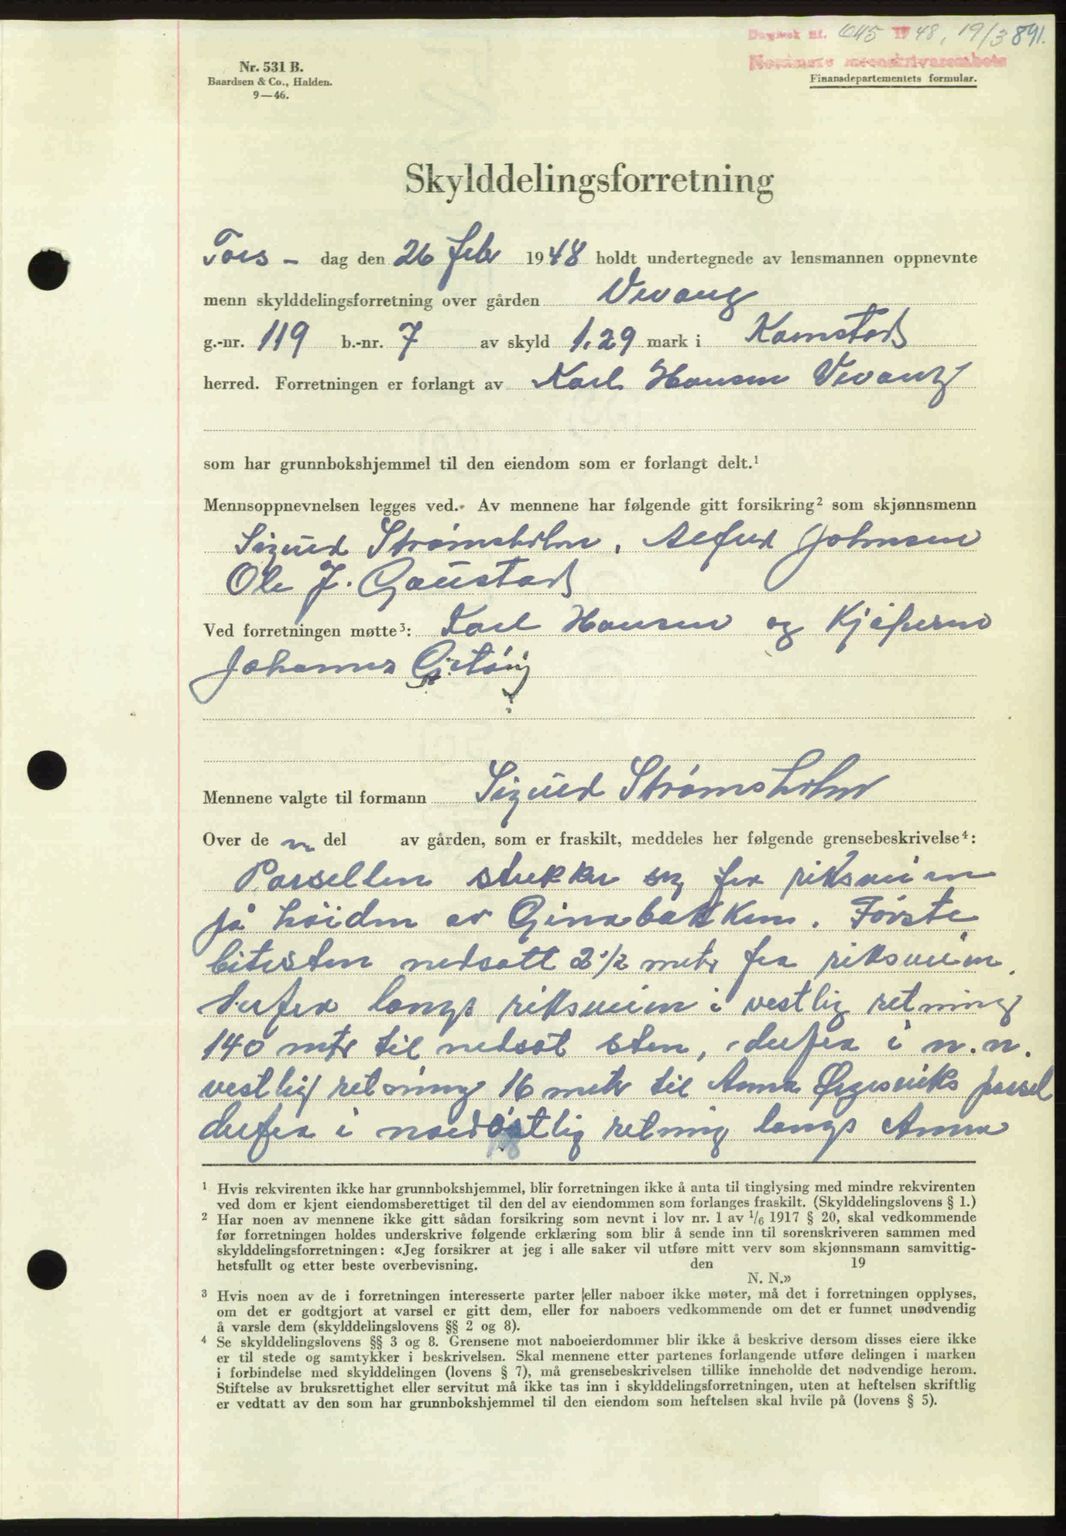 Dagbok nr. 645 1948, 19/3 891.
Nordmøre sorenskriverembete
Nr. 531 B.
Baardsen & Co., Halden.
9—46.
Finansdepartementets formular.
Skylddelingsforretning
Tors - dag den 26 febr 1948 holdt undertegnede av lensmannen oppnevnte
menn skylddelingsforretning over gården Vevang
g.-nr. 119 b.-nr. 7 av skyld 1.29 mark i Kornstad
herred. Forretningen er forlangt av Karl Hansen Vevang
som har grunnbokshjemmel til den eiendom som er forlangt delt.¹
Mennsoppnevnelsen legges ved. Av mennene har følgende gitt forsikring² som skjønnsmenn
Sigurd Strømsholm, Alfred Johnsen
Ole J. Gaustad
Ved forretningen møtte³: Karl Hansen og Kjøperne
Johannes
Mennene valgte til formann Sigurd Strømsholm
Over de n del av gården, som er fraskilt, meddeles her følgende grensebeskrivelse⁴:
Parsellen strekker seg fra riksveien
på høiden av Ginabakken. Første
bitesten nedsatt 2½ meter fra riksveien,
derfra langs riksveien i vestlig retning
140 mtr til nedsat sten, derfra i n.n.
vestlig retning 16 metr til Anna Ørgesviks parsel
derfra i nordøstlig retning langs Anna
¹ Hvis rekvirenten ikke har grunnbokshjemmel, blir forretningen ikke å anta til tinglysing med mindre rekvirenten
ved dom er kjent eiendomsberettiget til den del av eiendommen som forlanges fraskilt. (Skylddelingslovens § 1.)
² Har noen av mennene ikke gitt sådan forsikring som nevnt i lov nr. 1 av 1/6 1917 § 20, skal vedkommende
før forretningen holdes underskrive følgende erklæring som blir å sende inn til sorenskriveren sammen med
skylddelingsforretningen: «Jeg forsikrer at jeg i alle saker vil utføre mitt verv som skjønnsmann samvittig-
hetsfullt og etter beste overbevisning. den 19
N. N.»
³ Hvis noen av de i forretningen interesserte parter eller naboer ikke møter, må det i forretningen opplyses,
om det er godtgjort at varsel er gitt dem, eller for naboers vedkommende om det er funnet unødvendig
å varsle dem (skylddelingslovens §§ 2 og 8).
⁴ Se skylddelingslovens §§ 3 og 8. Grensene mot naboeierdommer blir ikke å beskrive dersom disses eiere ikke
er til stede og samtykker i beskrivelsen. Skal mennene etter partenes forlangende utføre delingen i marken
i forbindelse med skylddelingen (lovens § 7), må grensebeskrivelsen tillike inneholde det nødvendige herom.
Stiftelse av bruksrettighet eller servitut må ikke tas inn i skylddelingsforretningen, uten at heftelsen skriftlig
er vedtatt av den som har grunnbokshjemmel til den eiendom som heftelsen skal hvile på (lovens § 5).